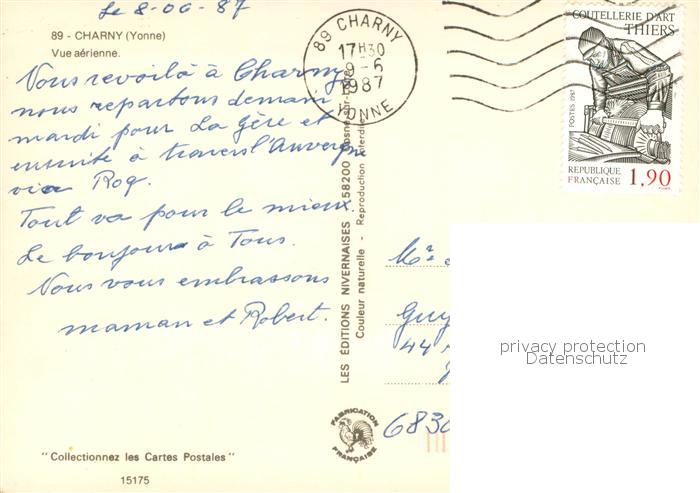 Le 8-06-87
89 - CHARNY (Yonne)
Vue aérienne.
Vous revoilà à Charny
nous repartons demain
mardi pour La Gère et
ensuite à travers l'Auvergne
via Roq.
Tout va pour le mieux.
Le bonjour à Tous.
Nous vous embrassons
maman et Robert.
"Collectionnez les Cartes Postales"
15175
LES ÉDITIONS NIVERNAISES - 58200 Cosne-sur-Loire
Couleur naturelle - Reproduction interdite
FABRICATION
FRANÇAISE
89 CHARNY
17H30
9-6
1987
YONNE
COUTELLERIE D'ART
THIERS
POSTES 1987
REPUBLIQUE
FRANÇAISE
1,90
Mr
Guy
44
6830
privacy protection
Datenschutz